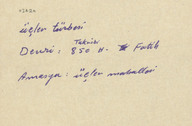 üçler türbesi
Takribi
Devri : 850 H. Fatih
Amasya : üçler mahallesi